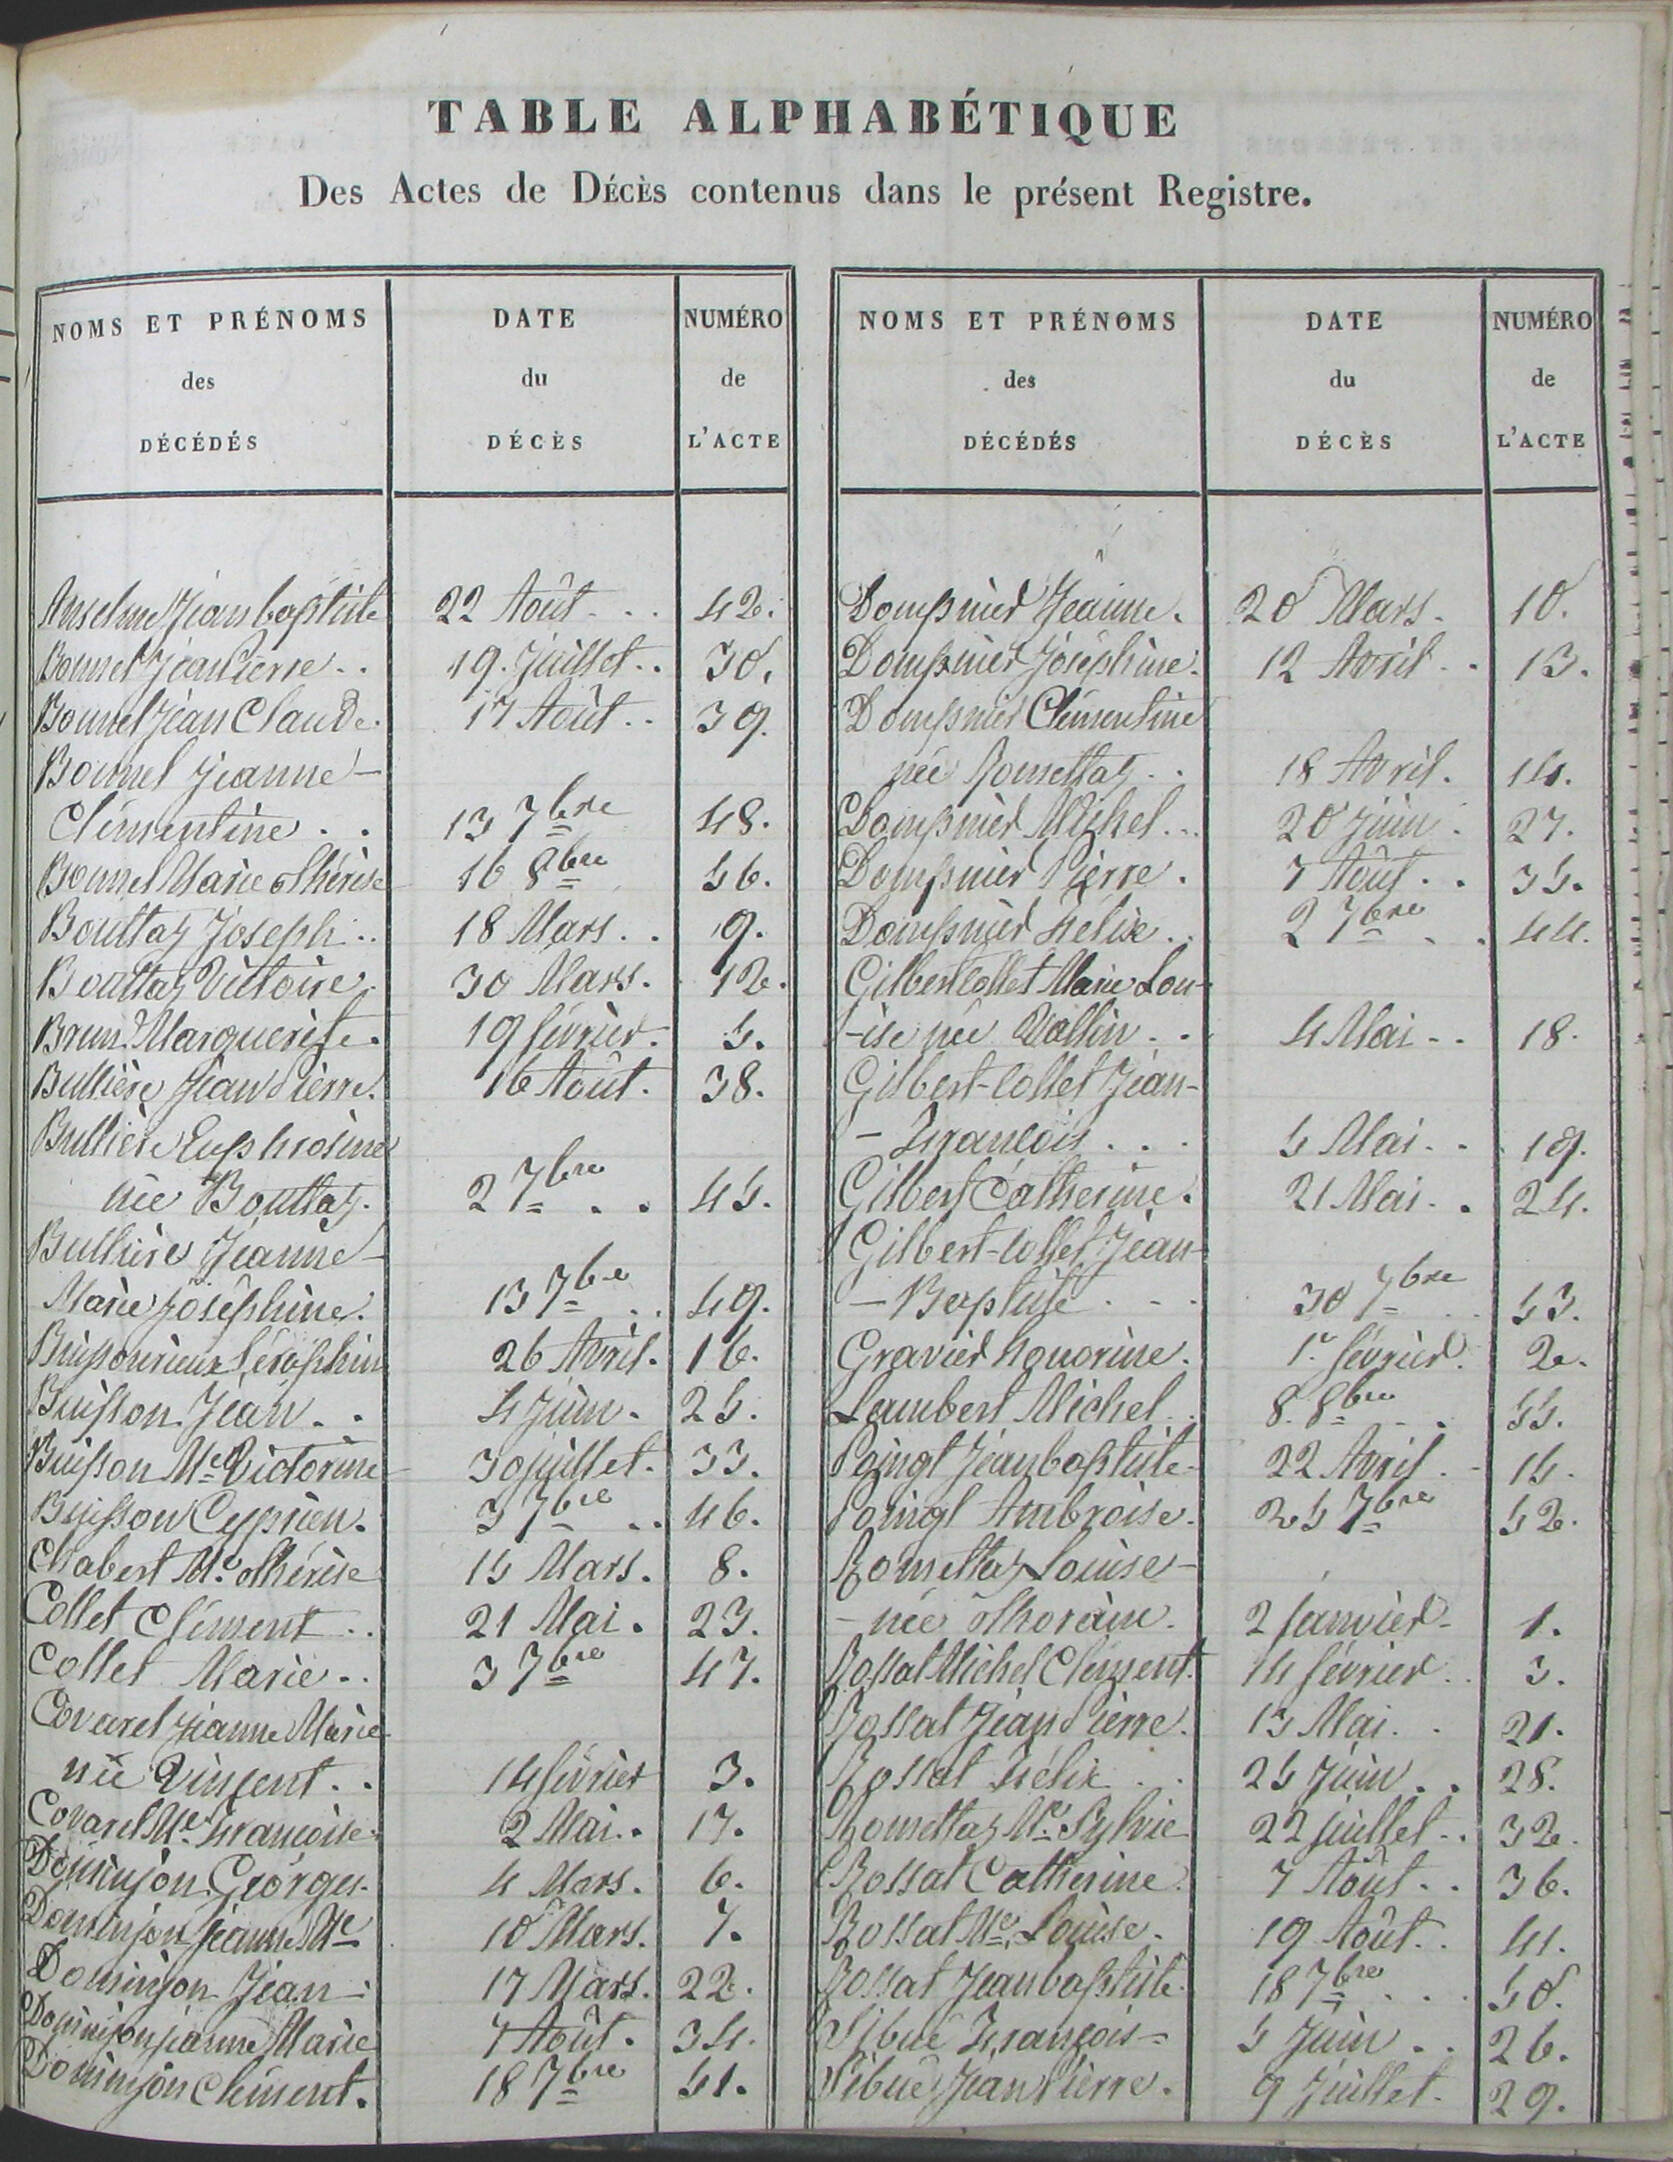 TABLE ALPHABÉTIQUE
Des Actes de DÉCÈS contenus dans le présent Registre.
NOMS ET PRÉNOMS
des
DÉCÉDÉS
DATE
du
DÉCÈS
NUMÉRO
de
L'ACTE
Anselme Jean baptiste 22 Août 42.
Bonnel Jean Pierre 19 Juillet 30.
Bonnel Jean Claude 17 Août 39.
Bonnel Jeanne-
Clémentine 13 7bre 48.
Bonnel Marie Thérèse 16 8bre 56.
Bouttaz Joseph 18 Mars 9.
Bouttaz Victoire 30 Mars. 12.
Brun Marguerite 19 février 5.
Bullière Jean Pierre. 16 Août. 38.
Bullière Euphrosine
née Bouttaz. 2 7bre 45.
Bullière Jeanne-
Marie Joséphine. 13 7bre 49.
Séraphin 26 Avril. 16.
Buisson Jean 4 Juin. 25.
Buisson Me Victorine 30 juillet. 33.
Buisson Cyprien. 3 7bre 46.
Chabert Me Thérèse 15 Mars. 8.
Collet Clément 21 Mai. 23.
Collet Marie 3 7bre 47.
Covarel Jeanne Marie
née Vincent 14 février 3.
Covarel Me Françoise 2 Mai. 17.
Dominjon Georges 4 Mars. 6.
Dominjon Jeanne Me 10 Mars. 7.
Dominjon Jean 17 Mars. 22.
Dominjon jeanne Marie 7 Août. 34.
Dominjon Clément. 18 7bre 51.
NOMS ET PRÉNOMS
des
DÉCÉDÉS
DATE
du
DÉCÈS
NUMÉRO
de
L'ACTE
Dompnier Jeanne. 20 Mars. 10.
Dompnier Joséphine. 12 Avril 13.
Dompnier Clémentine
née Romettaz 18 Avril. 14.
Dompnier Michel 20 juin. 27.
Dompnier Pierre. 7 Août 35.
Dompnier Félix 2 7bre 44.
Gilbert Collet Marie Lou-
-ise née Vallin 4 Mai 18.
Gilbert-Collet Jean-
-François 5 Mai 19.
Gilbert Catherine. 21 Mai 24.
Gilbert-Collet Jean-
-Baptiste 30 7bre 53.
Gravier Honorine. 1er février. 2.
Lambert Michel 8 8bre 55.
Poingt Jean baptiste 22 Avril 15.
Poingt Ambroise. 25 7bre 52.
Romettaz Louise-
-née Thorain. 2 Janvier 1.
Rossat Michel Clément. 14 février 3.
Rossat Jean Pierre. 15 Mai 21.
Rossat Félix 25 Juin 28.
Romettaz Me Sylvie 22 juillet 32.
Rossat Catherine 7 Août 36.
Rossat Me Louise. 19 Août 41.
Rossat Jean baptiste 18 7bre 50.
Sibué François 5 Juin 26.
Sibué Jean Pierre. 9 Juillet. 29.